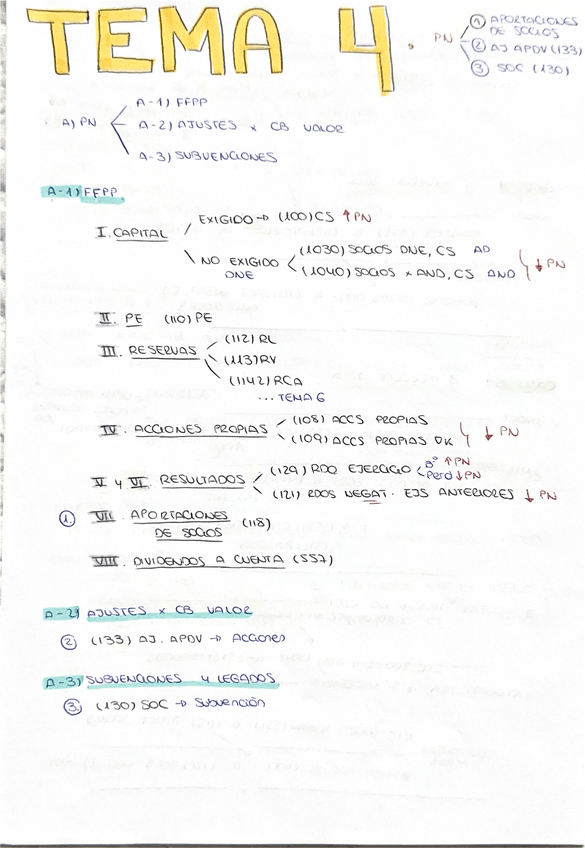 TEMA 4.
PN
① APORTACIONES DE SOCIOS
② AJ APDV (133)
③ SOC (130)
A) PN
A-1) FFPP
A-2) AJUSTES x CB VALOR
A-3) SUBVENCIONES
A-1) FFPP.
I. CAPITAL
EXIGIDO → (100) CS ↑ PN
NO EXIGIDO
ONE
(1030) SOCIOS DNE, CS AD
(1040) SOCIOS x AND, CS AND
↓ PN
II. PE (110) PE
III. RESERVAS
(112) RL
(113) RV
(1142) RCA
... TEMA 6
IV. ACCIONES PROPIAS
(108) ACCS PROPIAS
(109) ACCS PROPIAS DK
↓ PN
V y VI. RESULTADOS
(129) RDO EJERCICIO
Bº ↑ PN
Perd ↓ PN
(121) RDOS NEGAT. EJS ANTERIORES ↓ PN
①. VII. APORTACIONES DE SOCIOS (118)
VIII. DIVIDENDOS A CUENTA (557)
A-2) AJUSTES x CB VALOR
② (133) AJ. APDV → Acciones
A-3) SUBVENCIONES Y LEGADOS.
③. (130) SOC → Subvención